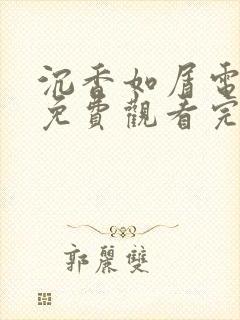 沉香如屑電
免費觀看完
郭麗雙